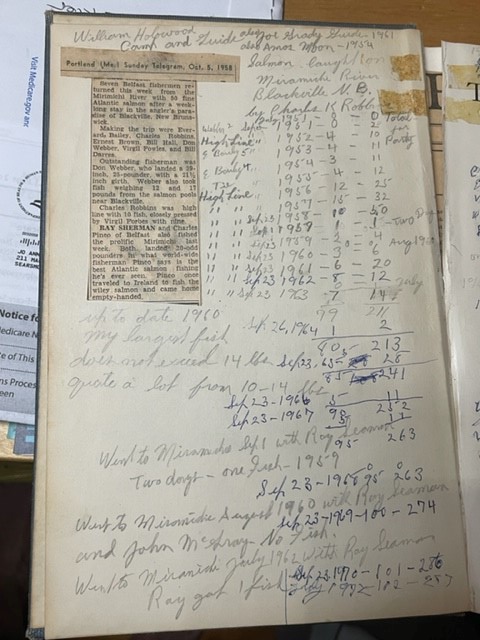 William Hopwood
Camp and Guide also for Grady Guide - 1961
also Amos Moon - 1954
Portland (Me.) Sunday Telegram, Oct. 5, 1958
Seven Belfast fishermen re-
turned this week from the
Mirimichi River with 59 fine
Atlantic salmon after a week-
long stay in the angler's para-
dise of Blackville, New Bruns-
wick.
Making the trip were Ever-
ard, Bailey, Charles Robbins,
Ernest Brown, Bill Hall, Don
Webber, Virgil Fowles, and Bill
Darres.
Outstanding fisherman was
Don Webber, who landed a 39-
inch, 26-pounder, with a 21½
inch girth. Webber also took
fish weighing 12 and 17
pounds from the salmon pools
near Blackville.
Charles Robbins was high
line with 10 fish, closely pressed
by Virgil Forbes with nine.
RAY SHERMAN and Charles
Pinco of Belfast also fished
the prolific Mirimichi last
week. Both landed 20-odd
pounders in what world-wide
fisherman Pinco says is the
best Atlantic salmon fishing
he's ever seen. Pinco once
traveled to Ireland to fish the
wiley salmon and came home
empty-handed.
Salmon caught on
Miramichi River
Blackville N.B.
by Charles K Robbins
July 1951 - 0 - 0 Total
1951 - 8 - for
1952 - 4 - 10 Party
High Line 1953 - 4 - 11
1954 - 3 - 11
1955 - 4 - 12
1956 - 12 - 25
High Line 1957 - 15 - 32
" " Sep 23 1958 - 10 - 50
1 - 1 - Two Days
Sep 23 1959 - 4
0 Aug 1960
" " Sep 23 1960 - 3 - 6
" " Sep 23 1961 - 6 - 20
" " Sep 23 1962 - 8 - 12
July
" " Sep 23 1963 7 14
79 211
up to date 1960
Sep. 26, 1964 1 2
my largest fish
80 - 213
does not exceed 14 lbs Sep 23 - 65 - 28
241
quite a lot from 10-14 lbs
Sep 23 - 1966 11
Sep 23 - 1967 252
95 263
Went to Miramichi Sep 1 with Ray Seaman
Two days - one fish - 1959
Sep 23 - 1968 95 263
Went to Miramichi August 1960 with Ray Seaman
Sep 23 - 1969 - 100 - 274
and John McGray - No Fish.
Went to Miramichi July 1962 with Ray Seaman
Ray got 1 fish
Sep 23 1970 - 101 - 286
102 - 287
JO ANN
211 MA
SEARSM
Notice fo
Medicare N
e of This
ns Proces
en